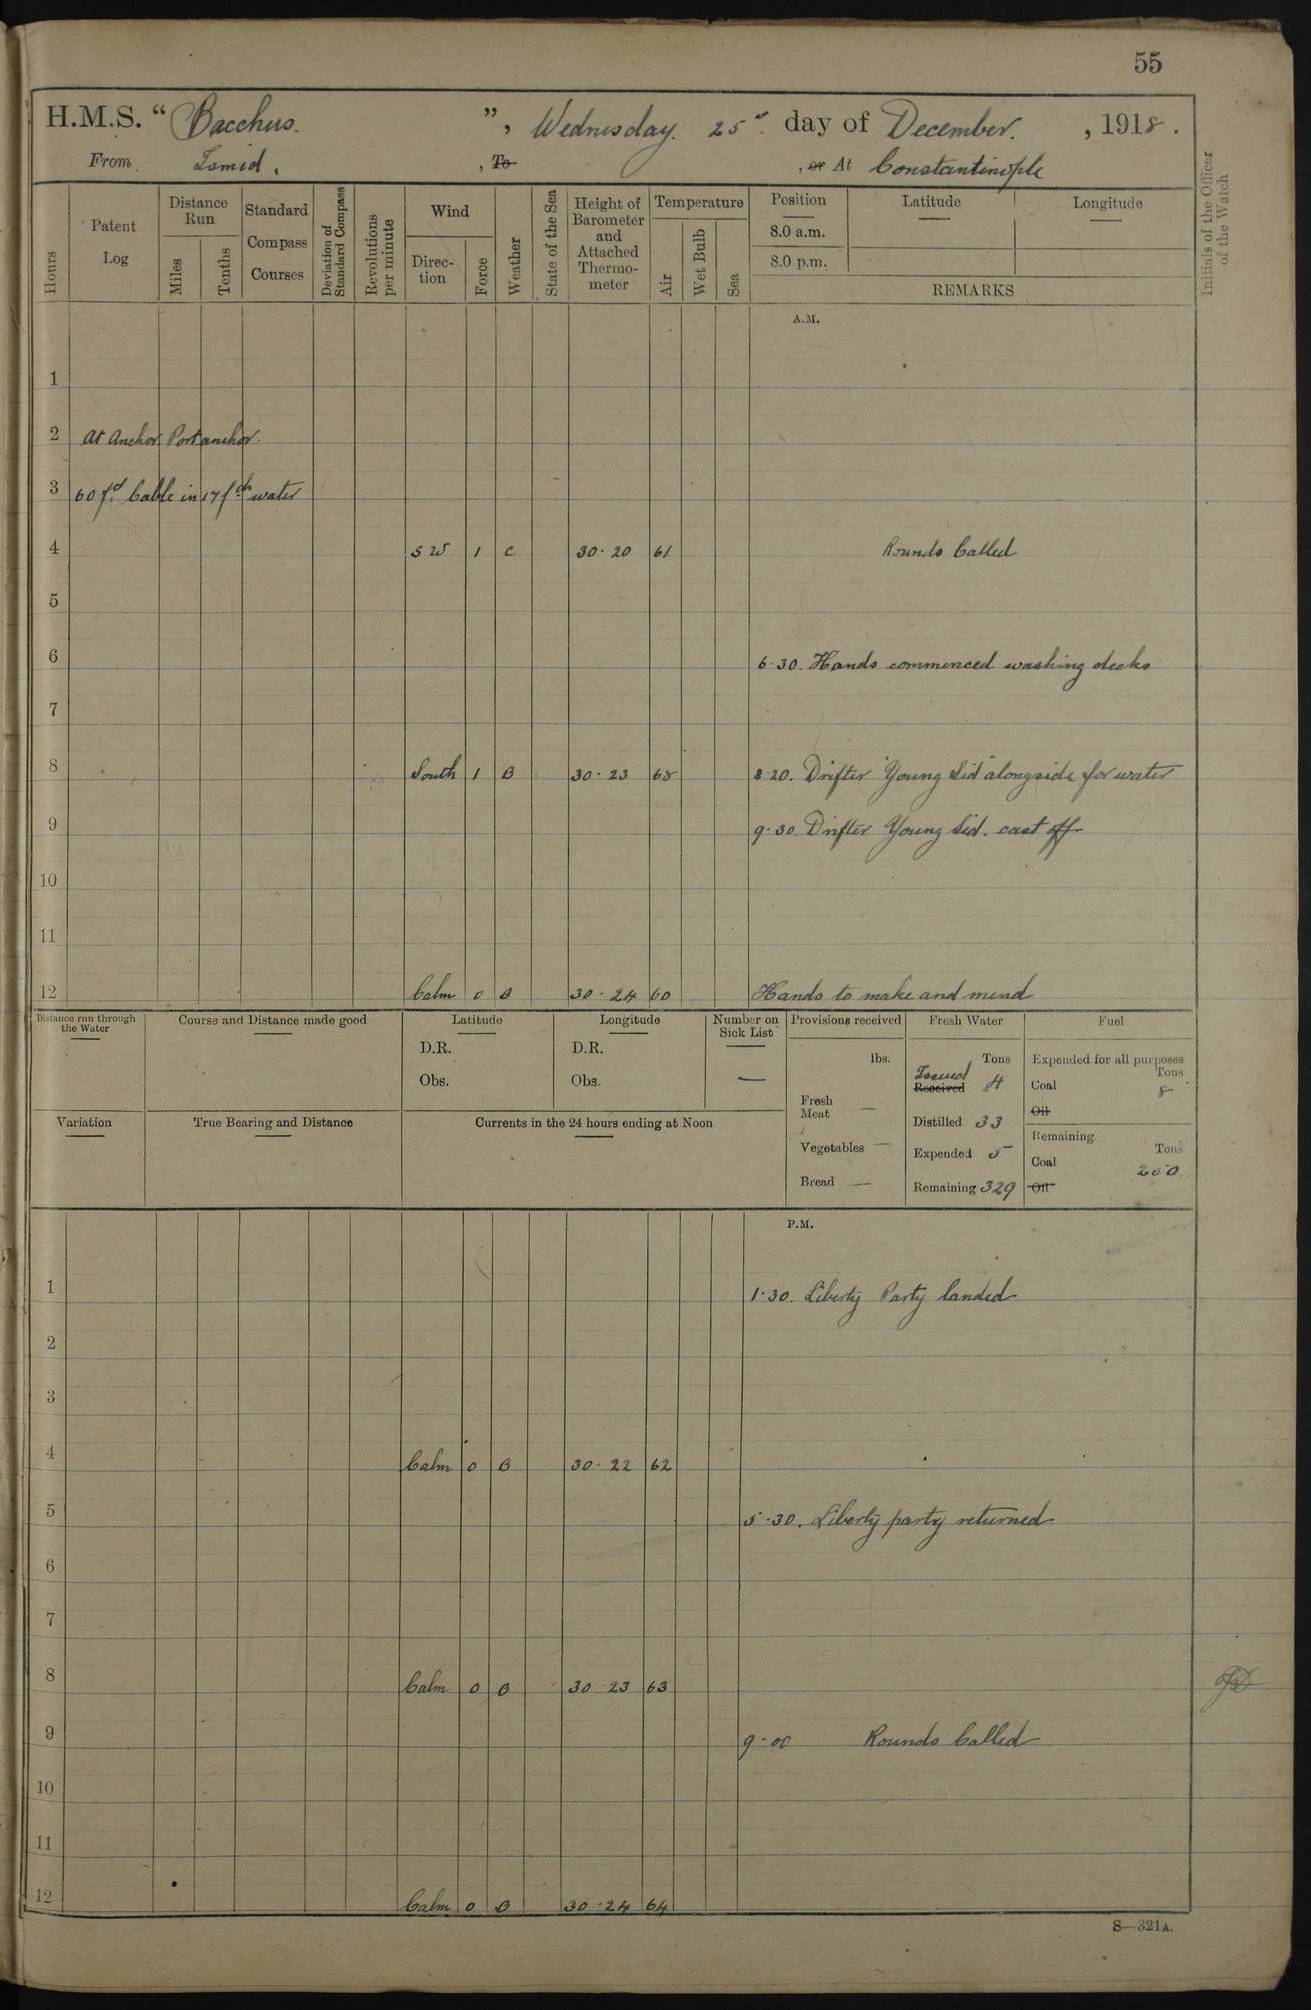 55
H.M.S. “ Bacchus. ”, Wednesday. 25th. day of December. , 1918.
From Ismid. , To , or At Constantinople
Hours
Patent Log
Distance Run
Miles
Tenths
Standard Compass Courses
Deviation of Standard Compass
Revolutions per minute
Wind
Direction
Force
Weather
State of the Sea
Height of Barometer and Attached Thermometer
Temperature
Air
Wet Bulb
Sea
Position
8.0 a.m.
8.0 p.m.
Latitude
Longitude
REMARKS
Initials of the Officer of the Watch
A.M.
1
2 At Anchor. Port anchor.
3 60 fd. Cable in 17 fth water
4 SW 1 C 30·20 61 Rounds Called
5
6 6·30. Hands commenced washing decks
7
8 South 1 B 30·23 68 8·20. Drifter "Young Sid" alongside for water
9 9·30. Drifter Young Sid. cast off
10
11
12 Calm 0 B 30·24 60 Hands to make and mend
Distance run through the Water
Course and Distance made good
Latitude
D.R.
Obs.
Longitude
D.R.
Obs.
Number on Sick List
—
Provisions received
lbs.
Fresh Meat —
Vegetables —
Bread —
Fresh Water
Tons
Issued
Received 4
Distilled 33
Expended 5
Remaining 329
Fuel
Expended for all purposes
Tons
Coal 8
Oil
Remaining
Tons
Coal 200
Oil
Variation
True Bearing and Distance
Currents in the 24 hours ending at Noon
P.M.
1 1·30. Liberty Party landed
2
3
4 Calm 0 B 30·22 62
5 5·30. Liberty party returned
6
7
8 Calm 0 B 30·23 63
9 9·00 Rounds Called
10
11
12 Calm 0 B 30·24 64
S—321A.